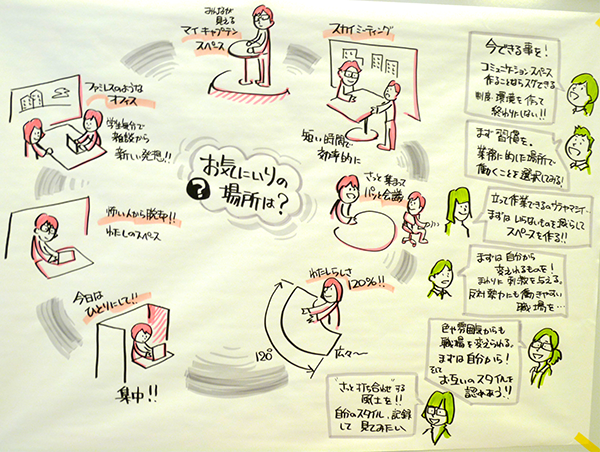 みんなが
見える
マイキャプテン
スペース
スカイミーティング
短い時間で
効率的に
ファミレスのような
オフィス
学生気分で
雑談から
新しい発想!!
お気にいりの
場所は?
?
さっと集まって
パッと会議
怖い人から脱却!!
わたしのスペース
わたしらしさ
120%!!
120°
広々〜
今日は
ひとりにして!!
集中!!
今できる事を!
コミュニケーションスペース
作ることならスグできる
制度・環境を作って
終わりじゃない!!
まず習慣を。
業務に適した場所で
働くことを選択してみる!
立って作業できるのウラヤマシイ…
まずはいらないものを減らして
スペースを作る!!
まずは自分から
変えれるものを!
まわりに刺激を与える。
反対勢力にも働きやすい
職場を…
色や雰囲気からも
職場を変えられる。
まずは自分から!
そして
お互いのスタイルを
認めあう!!
"さっと打ち合わせ"する
風土を!!
自分のスタイル、記録
して見てみたい